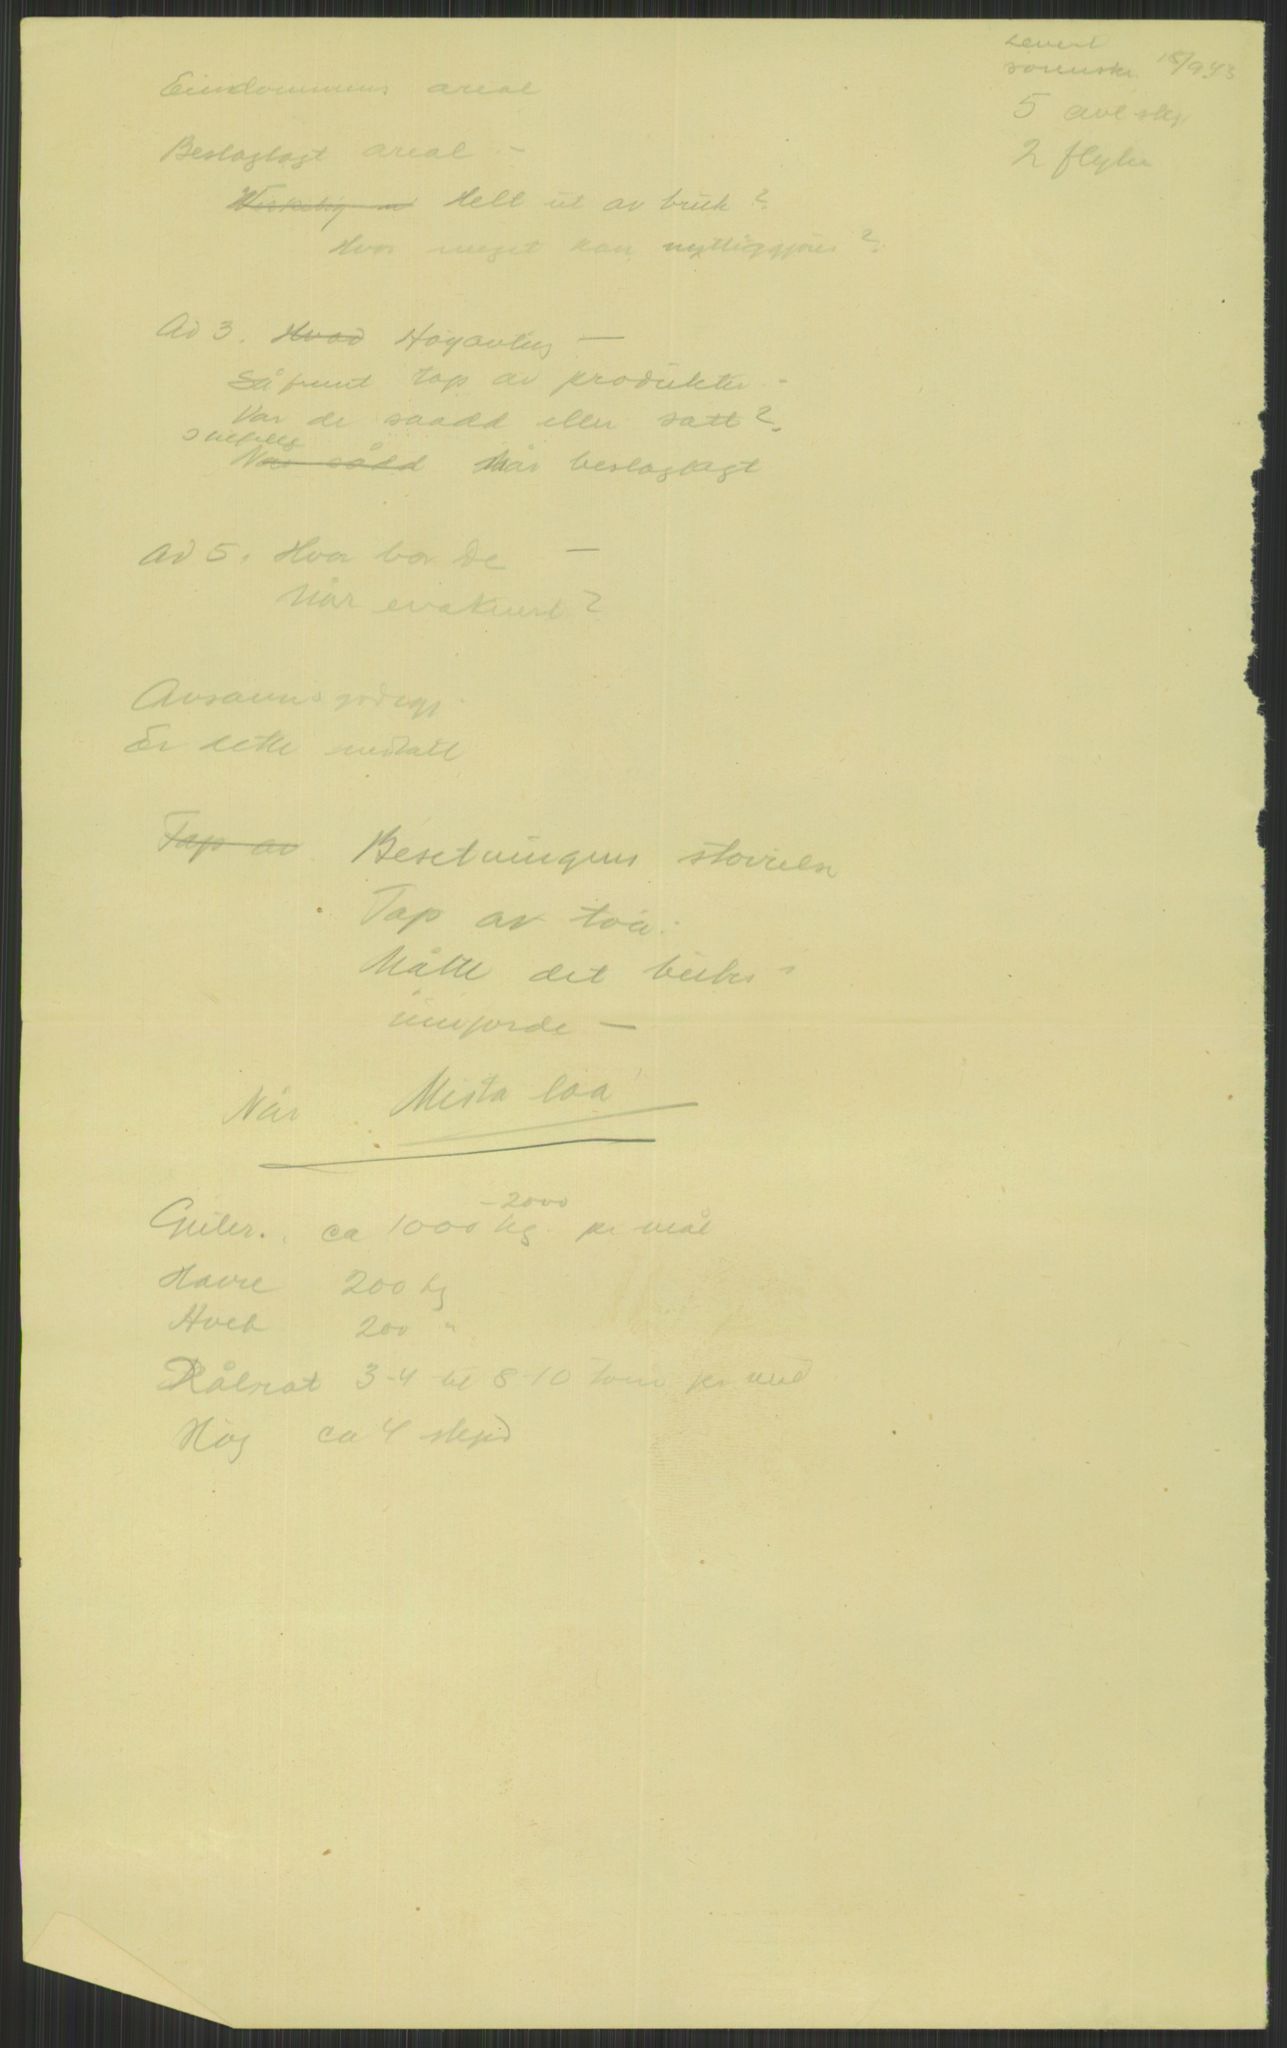 Levert
sorenskr. 15/9 43
5 avl skj
2 flyler
Eiendommens areal
Beslaglagt areal -
Helt ut av bruk ?
Hvor meget kan nyttiggjöres ?
Ad 3. Hvad Höyavling —
Såfremt tap av produkter -
Var de saadd eller satt ?
Når sådd Når beslaglagt
Ad 5. Hvor bor De —
Når evakuert ?
Er dette medtatt
Tap av Besetningens störrelse
Tap av
Måtte det
innjorde —
Når Mista loa
- 2000
ca 1000 kg. pr mål
Havre 200 kg
Hvete 200 "
Kålrot 3-4 til 8-10 tonn pr mål
Höy ca 4 skpd